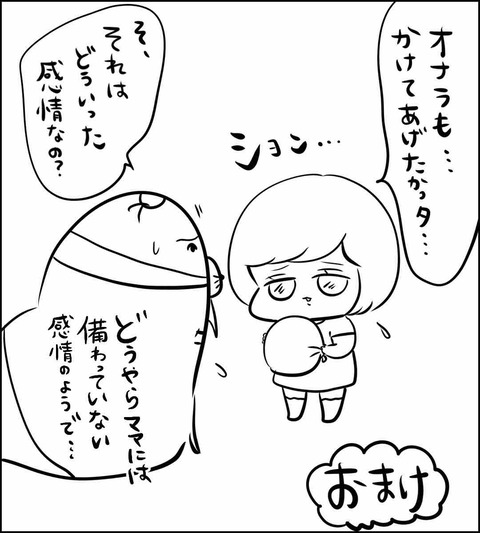 オナラも…
かけてあげたかっタ…
ション…
そ、
それは
どういった
感情なの?
どうやらママには
備わっていない
感情のようで…
おまけ